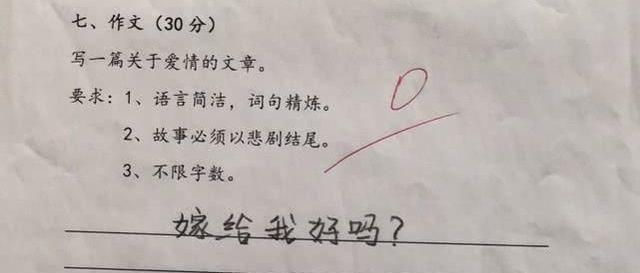 七、作文（30分）
写一篇关于爱情的文章。
要求：1、语言简洁，词句精炼。
2、故事必须以悲剧结尾。
3、不限字数。
0
嫁给我好吗？